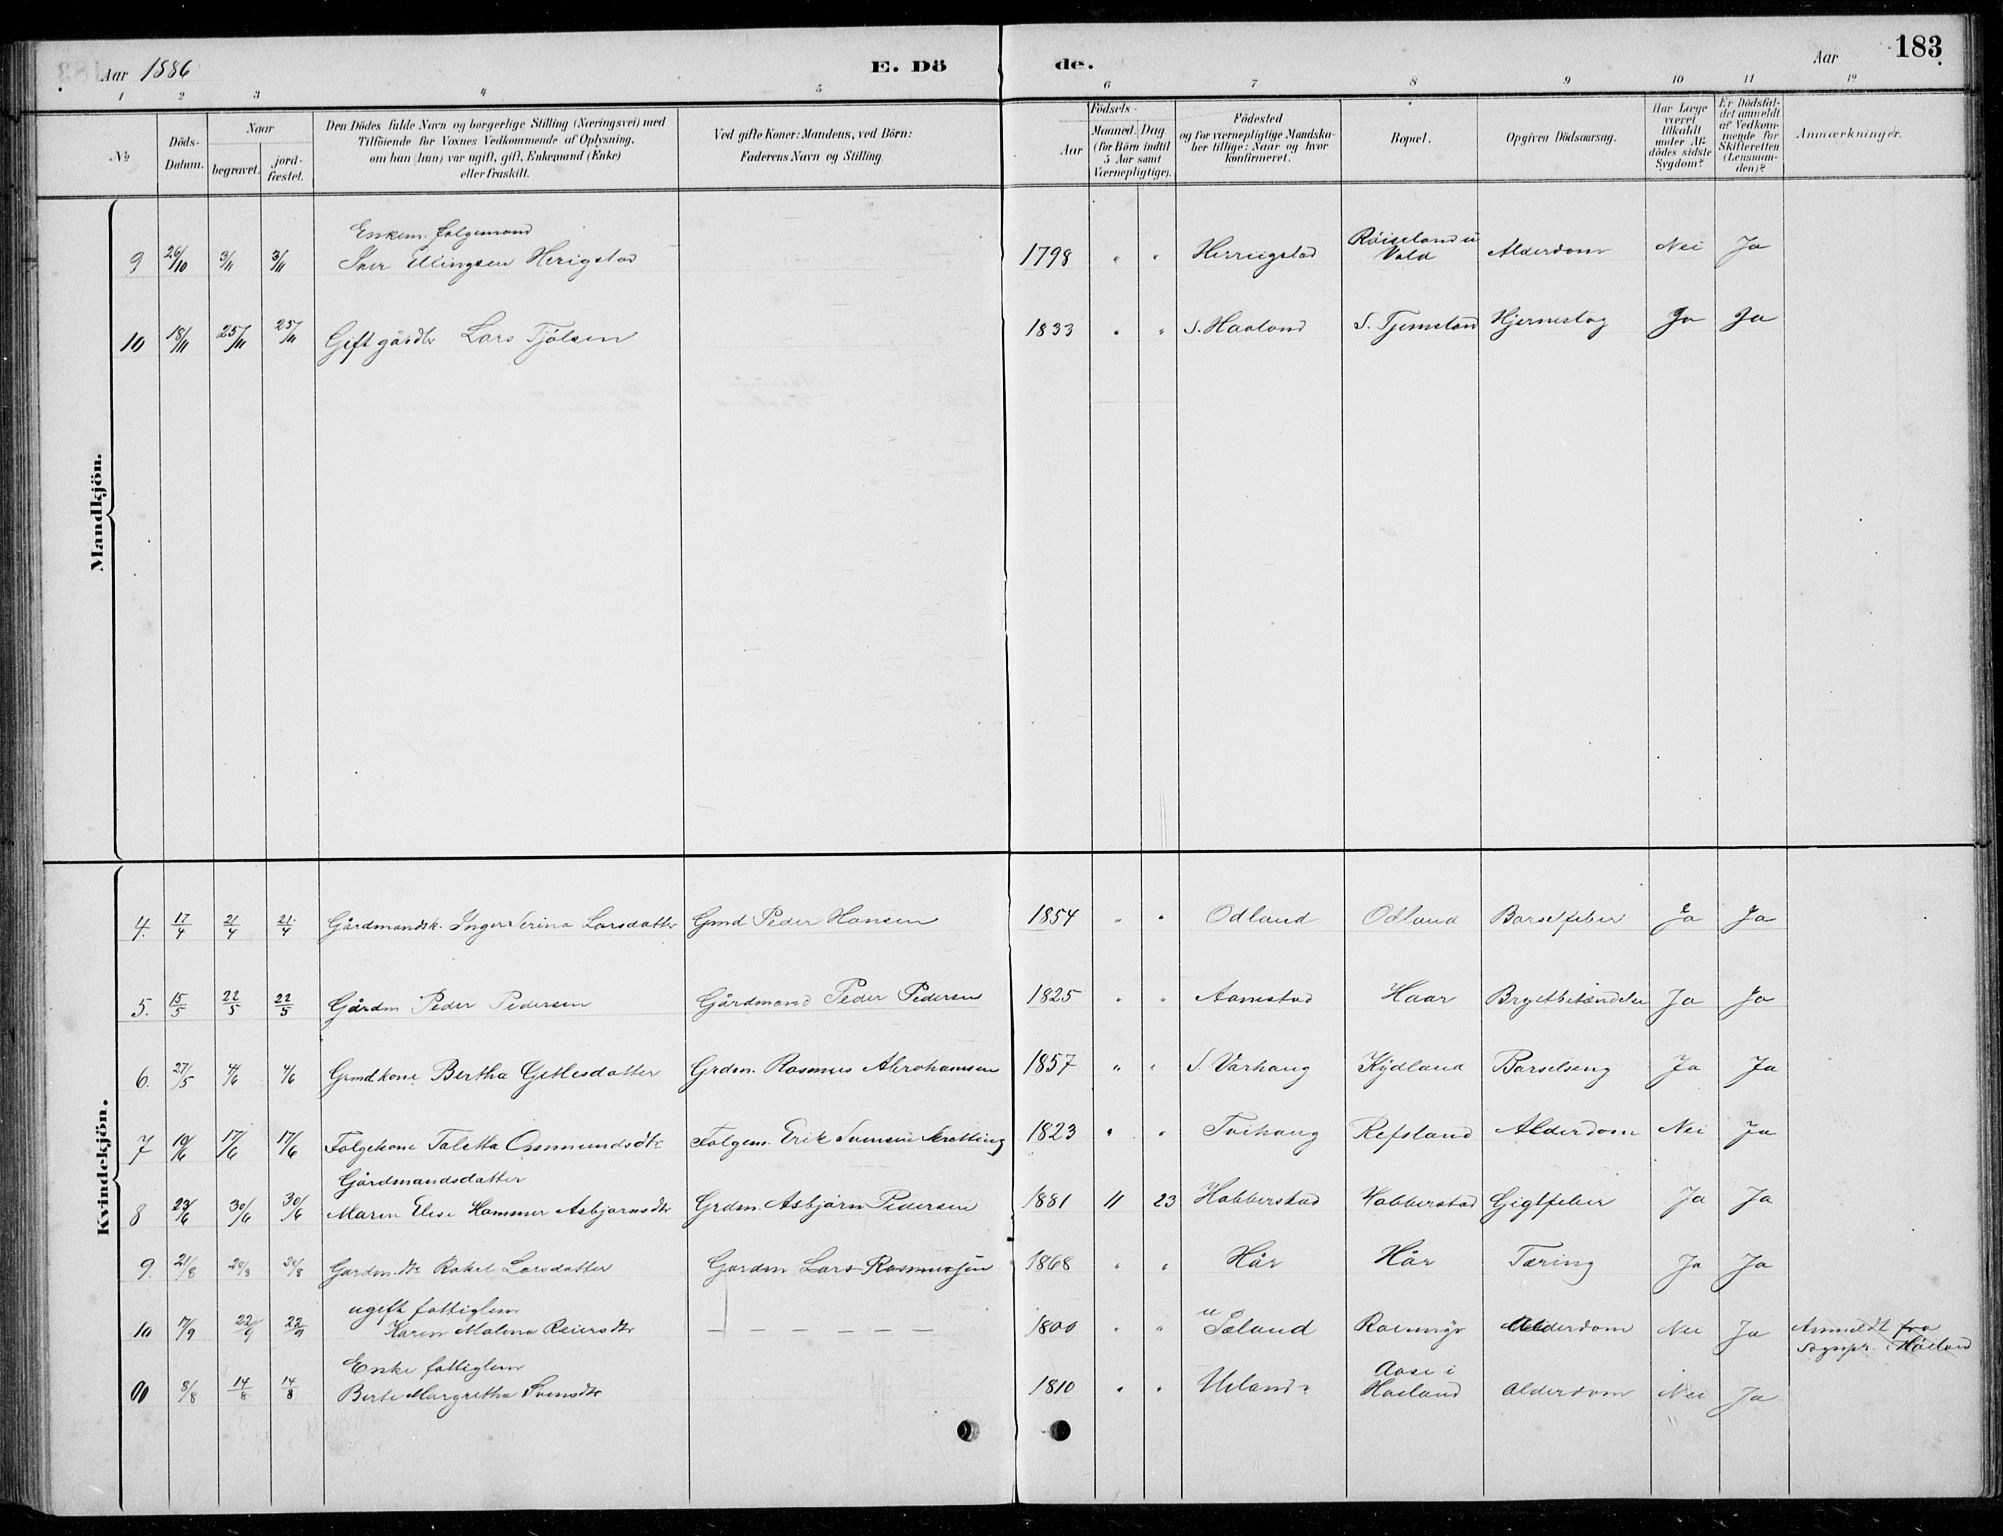 Aar 1886
E. Döde.
Aar
183
1 2 3 4 5 6 7 8 9 10 11 12
No
Döds-Datum.
Naar
begravet.
jord-fæstet.
Den Dödes fulde Navn og borgerlige Stilling (Næringsvei) med
Tilföiende for Voxnes Vedkommende af Oplysning,
om han (hun) var ugift, gift, Enkemand (Enke)
eller fraskilt.
Ved gifte Koner: Mandens, ved Börn:
Faderens Navn og Stilling.
Födsels-
Aar
Maaned. Dag.
(for Börn indtil
5 Aar samt
Værnepligtige).
Födested
og for værnepligtige Mandska-
ber tillige: Naar og hvor
konfirmeret.
Bopæl.
Opgiven Dödsaarsag.
Har Læge
været
tilkaldt
under Af-
dödes sidste
Sygdom?
Er Dödsfal-
det anmeldt
af Vedkom-
mende for
Skifteretten
(Lensman-
den)?
Anmærkninger.
Mandkjön.
Enkem. folgemand
Röiseland u
9 26/10 3/11 3/11 Iver Ellingsen Herigstad 1798 " " Herreigstad Vold Alderdom Nei Ja
10 18/11 25/11 25/11 Gift gårdbr Lars Tjölsen 1833 " " S. Haaland S. Tjemsland Hjerneslag Ja Ja
Kvindekjön.
4. 17/4 21/4 21/4 Gårdmandsk. Inger Serina Larsdatter Gmd Peder Hansen 1854 " " Odland Odland Barselfeber Ja Ja
5. 15/5 22/5 22/5 Gårdm Peder Pedersen Gårdmand Peder Pedersen 1825 " " Aanestad Haar Brystbetændelse Ja Ja
6. 27/5 4/6 4/6 Grmdkone Bertha Getlesdatter Grdm. Rasmus Abrahamsen 1857 " " S. Varhaug Kydland Barselseng Ja Ja
7 10/6 17/6 17/6 Folgekone Taletta Osmundsdtr Folgem. Erik Svensen Skretting 1823 " " Tvihaug Refsland Alderdom Nei Ja
Gårdmandsdatter
8 23/6 30/6 30/6 Maren Elise Hammer Asbjørnsdtr Grdm. Asbjörn Pedersen 1881 11 23 Hobberstad Hobberstad Gigtfeber Ja Ja
9. 21/8 28/8 28/8 Gardm. dtr Rakel Larsdatter Gardm Lars Rasmussen 1868 " " Hår Hår Tæring Ja Ja
ugift fattiglem
10 17/9 22/9 22/9 Karen Malena Reiersdtr — — — — — — 1800 " " Söland Alderdom Nei Ja Anmeldt fra
Sognepr. i Höiland
Enke fattiglem
Aase i
8/8 14/8 14/8 Berte Margretha Svensdtr 1810 " " Ueland? Hoeland Alderdom Nei Ja